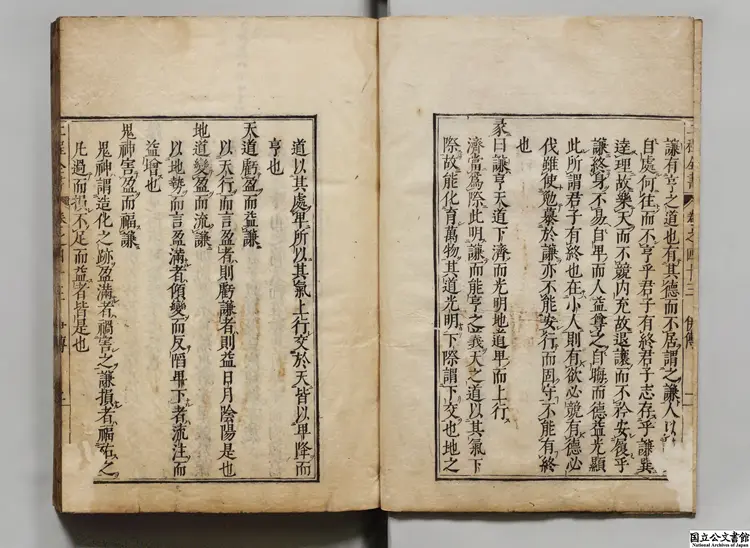 謙有亨之道也有其德而不居謂之謙人以
自處何往而不亨乎君子有終君子志存乎謙巽
達理故樂天而不競内充故退讓而不矜安履乎
謙終身不易自卑而人益尊之自晦而德益光顯
此所謂君子有終也在小人則有欲必競有德必
伐雖使勉慕於謙亦不能安行而固守不能有終
也
彖曰謙亨天道下濟而光明地道卑而上行
濟當爲際此明謙而能亨之義天之道以其氣下
際故能化育萬物其道光明下際謂下交也地之
道以其處卑所以其氣上行交於天皆以卑降而
亨也
天道虧盈而益謙
以天行而言盈者則虧謙者則益日月陰陽是也
地道變盈而流謙
以地勢而言盈滿者傾變而反陷卑下者流注而
益增也
鬼神害盈而福謙
鬼神謂造化之跡盈滿者禍害之謙損者福祐之
凡過而損不足而益者皆是也
二程全書 卷之四十三 伊傳
国立公文書館
National Archives of Japan